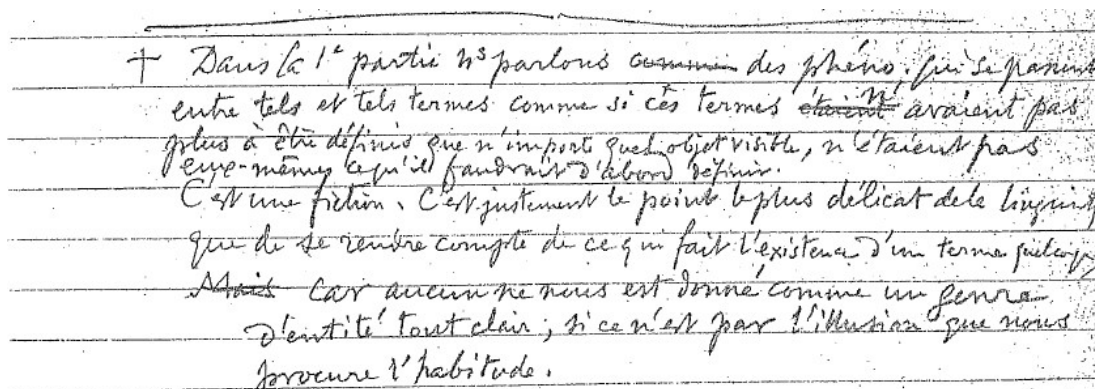 + Dans la 1e partie ns parlons comme des phéno. qui se passent
entre tels et tels termes comme si ces termes étaient n' avaient pas
plus à être définis que n'importe quel objet visible, n'étaient pas
eux-mêmes ce qu'il faudrait d'abord définir.
C'est une fiction. C'est justement le point le plus délicat de la linguist
que de se rendre compte de ce qui fait l'existence d'un terme quelconque,
Mais Car aucun ne nous est donné comme un genre
d'entité tout clair ; si ce n'est par l'illusion que nous
procure l'habitude.